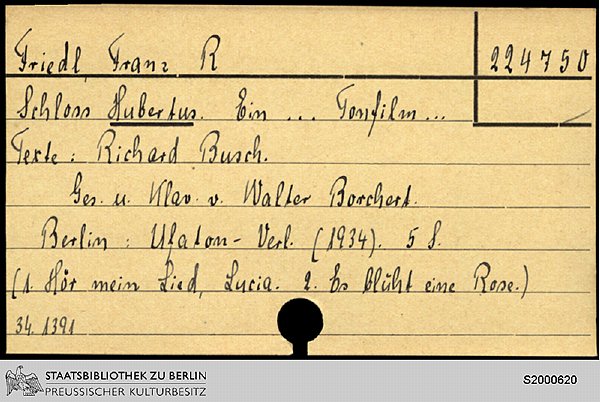 Friedl, Franz R
224750
Schloss Hubertus. Ein ... Tonfilm...
Texte: Richard Busch.
Ges. u. Klav. v. Walter Borchert.
Berlin: Ufaton-Verl. (1934). 5 S.
(1. Hör mein Lied, Lucia. 2. Es blüht eine Rose.)
34.1391
STAATSBIBLIOTHEK ZU BERLIN
PREUSSISCHER KULTURBESITZ
S2000620